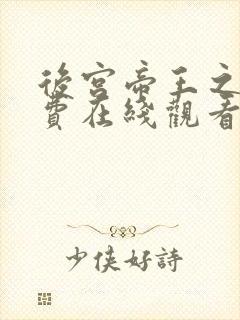 後宮帝王之
費在綫觀看
少俠好詩